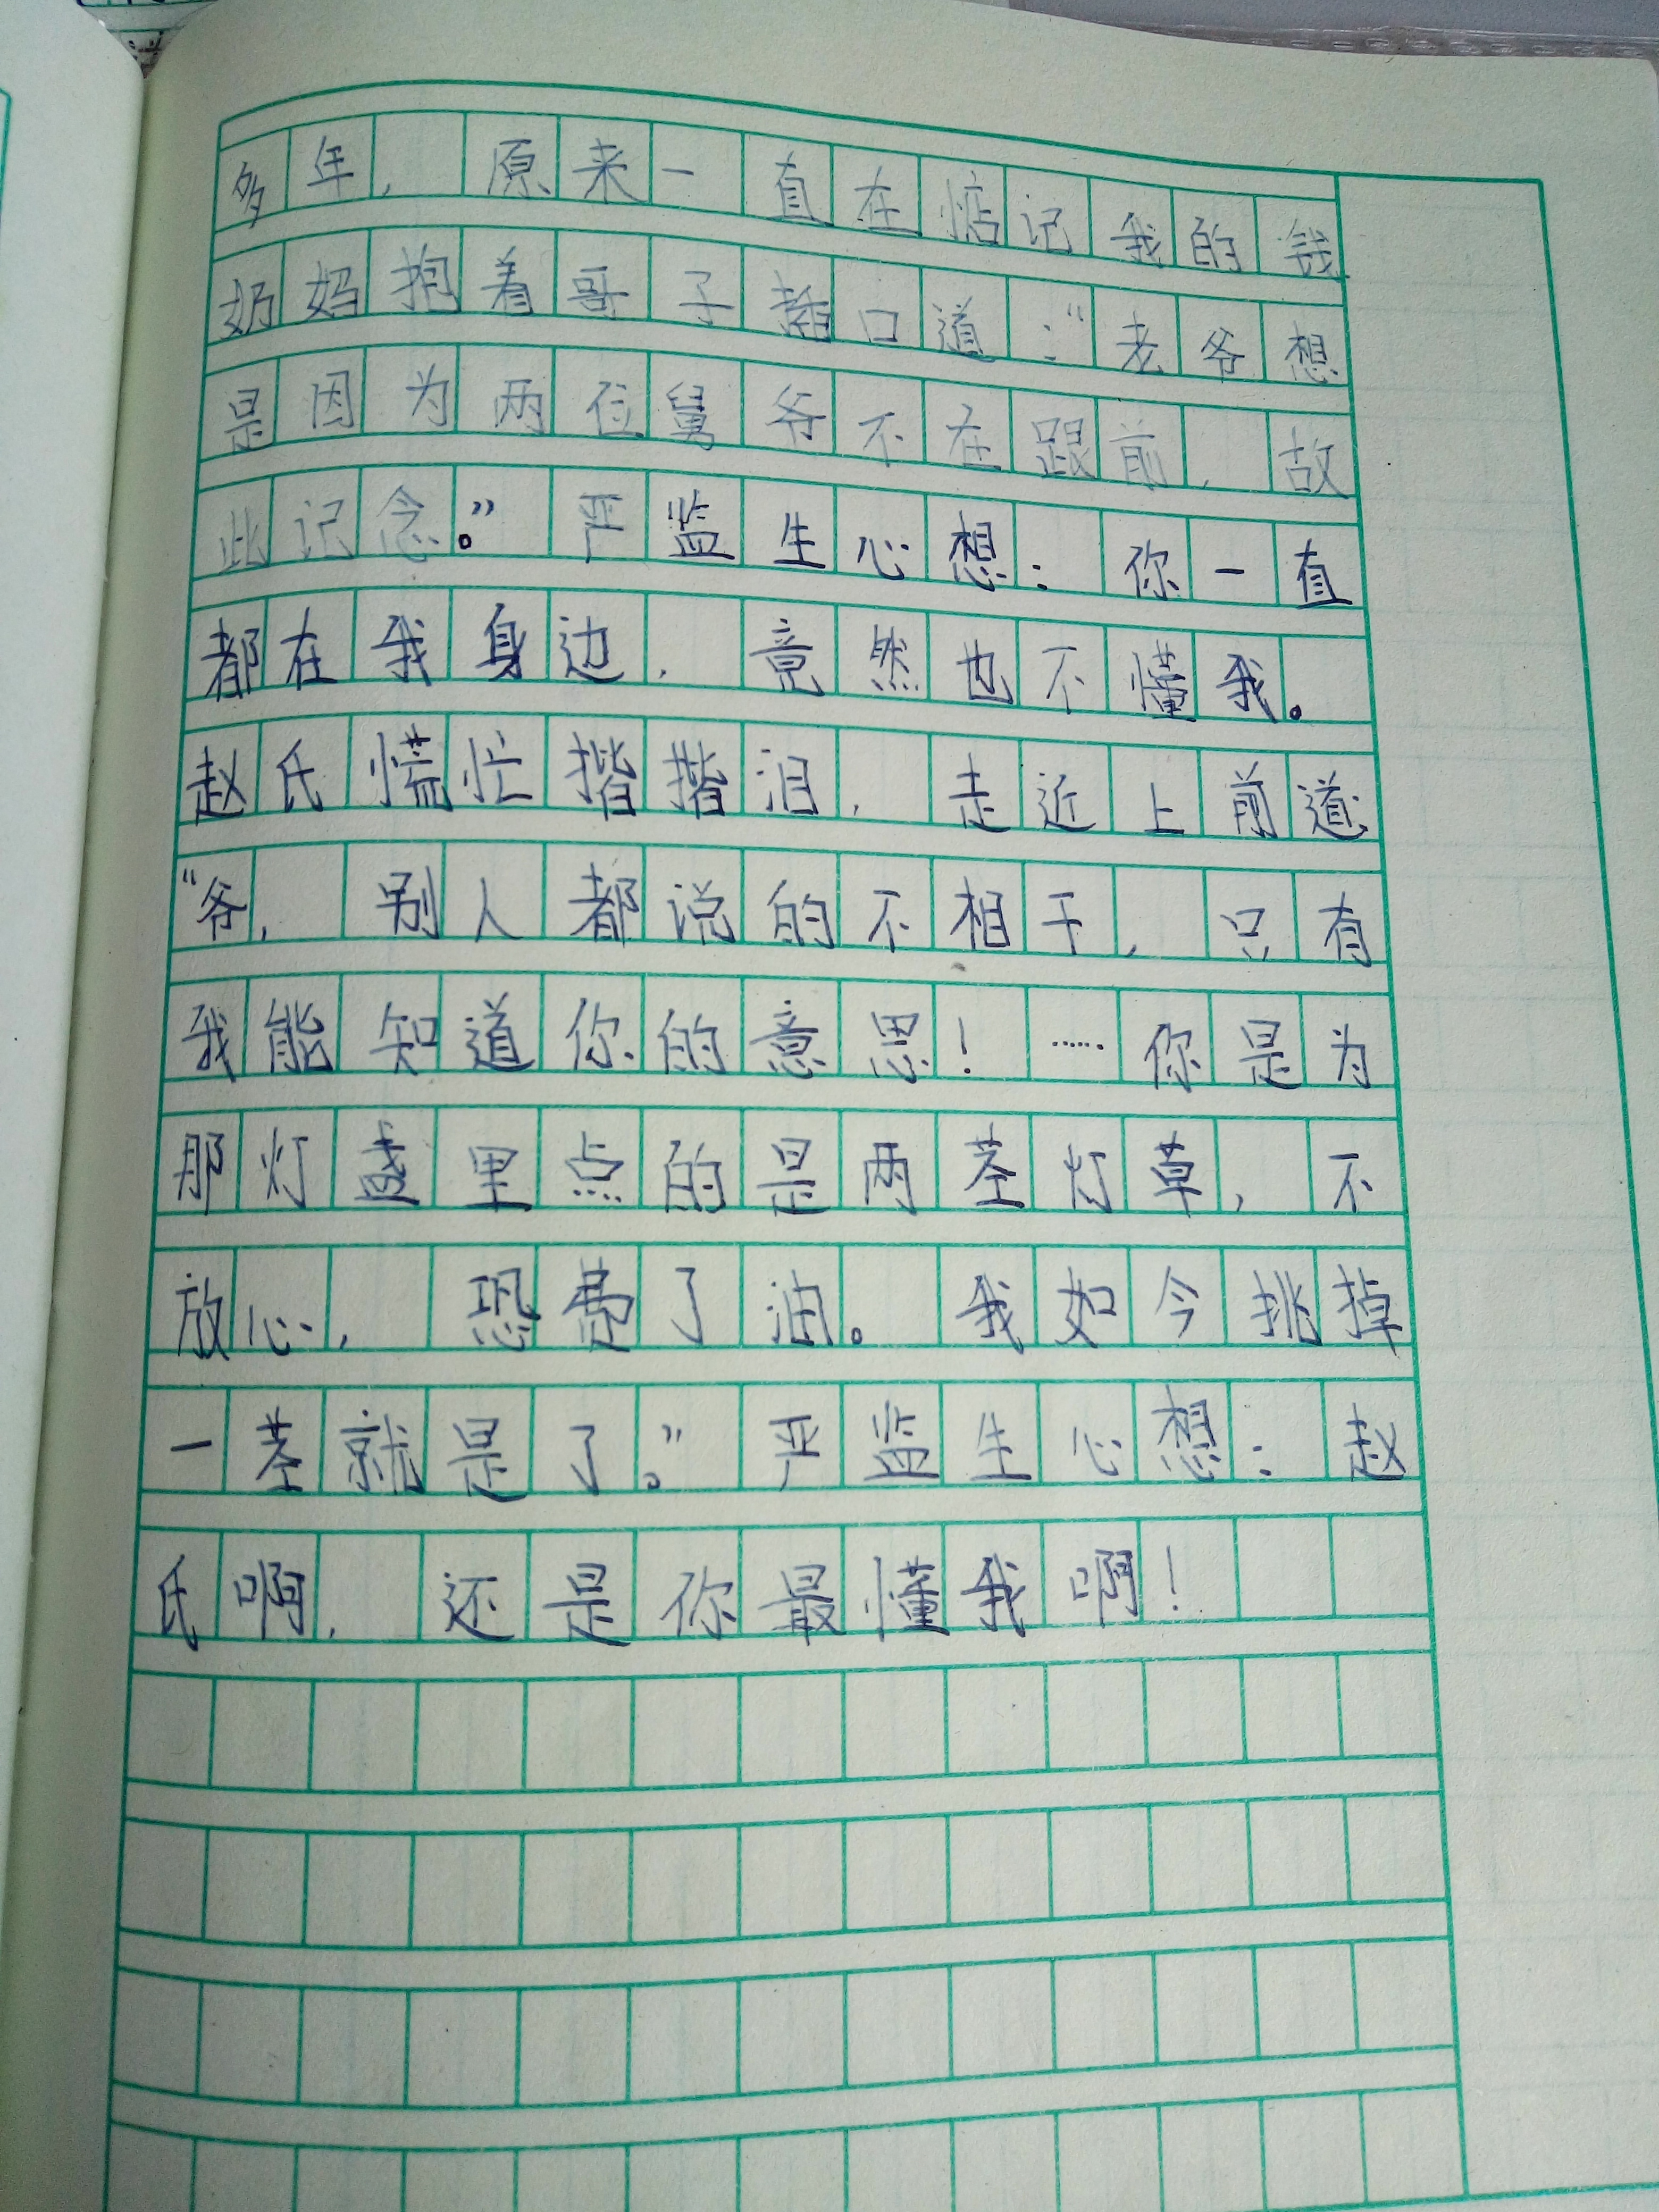 多年，原来一直在惦记我的钱
奶妈抱着哥子插口道：“老爷想
是因为两位舅爷不在跟前，故
此记念。”严监生心想：你一直
都在我身边，竟然也不懂我。
赵氏慌忙揩揩泪，走近上前道
“爷，别人都说的不相干，只有
我能知道你的意思！……你是为
那灯盏里点的是两茎灯草，不
放心，恐费了油。我如今挑掉
一茎就是了。”严监生心想：赵
氏啊，还是你最懂我啊！